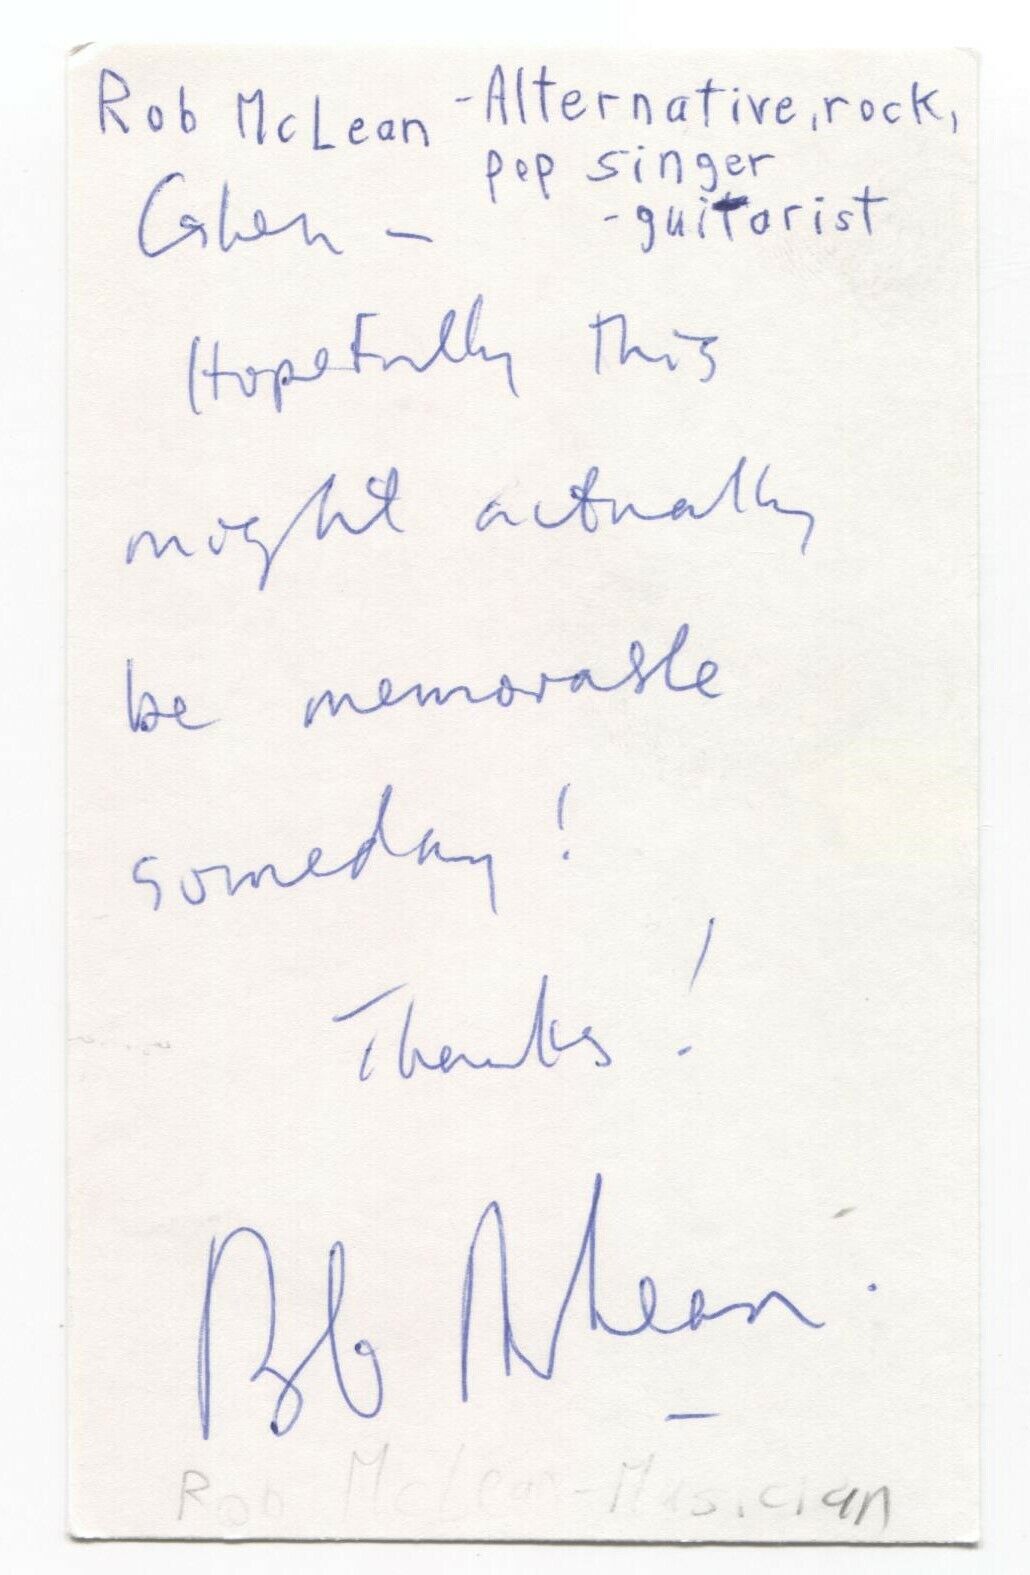 Rob McLean - Alternative, rock,
pop singer
- guitarist
Cohen -
Hopefully this
might actually
be memorable
someday!
Thanks!
Rob McLean.
Rob McLean - Musician